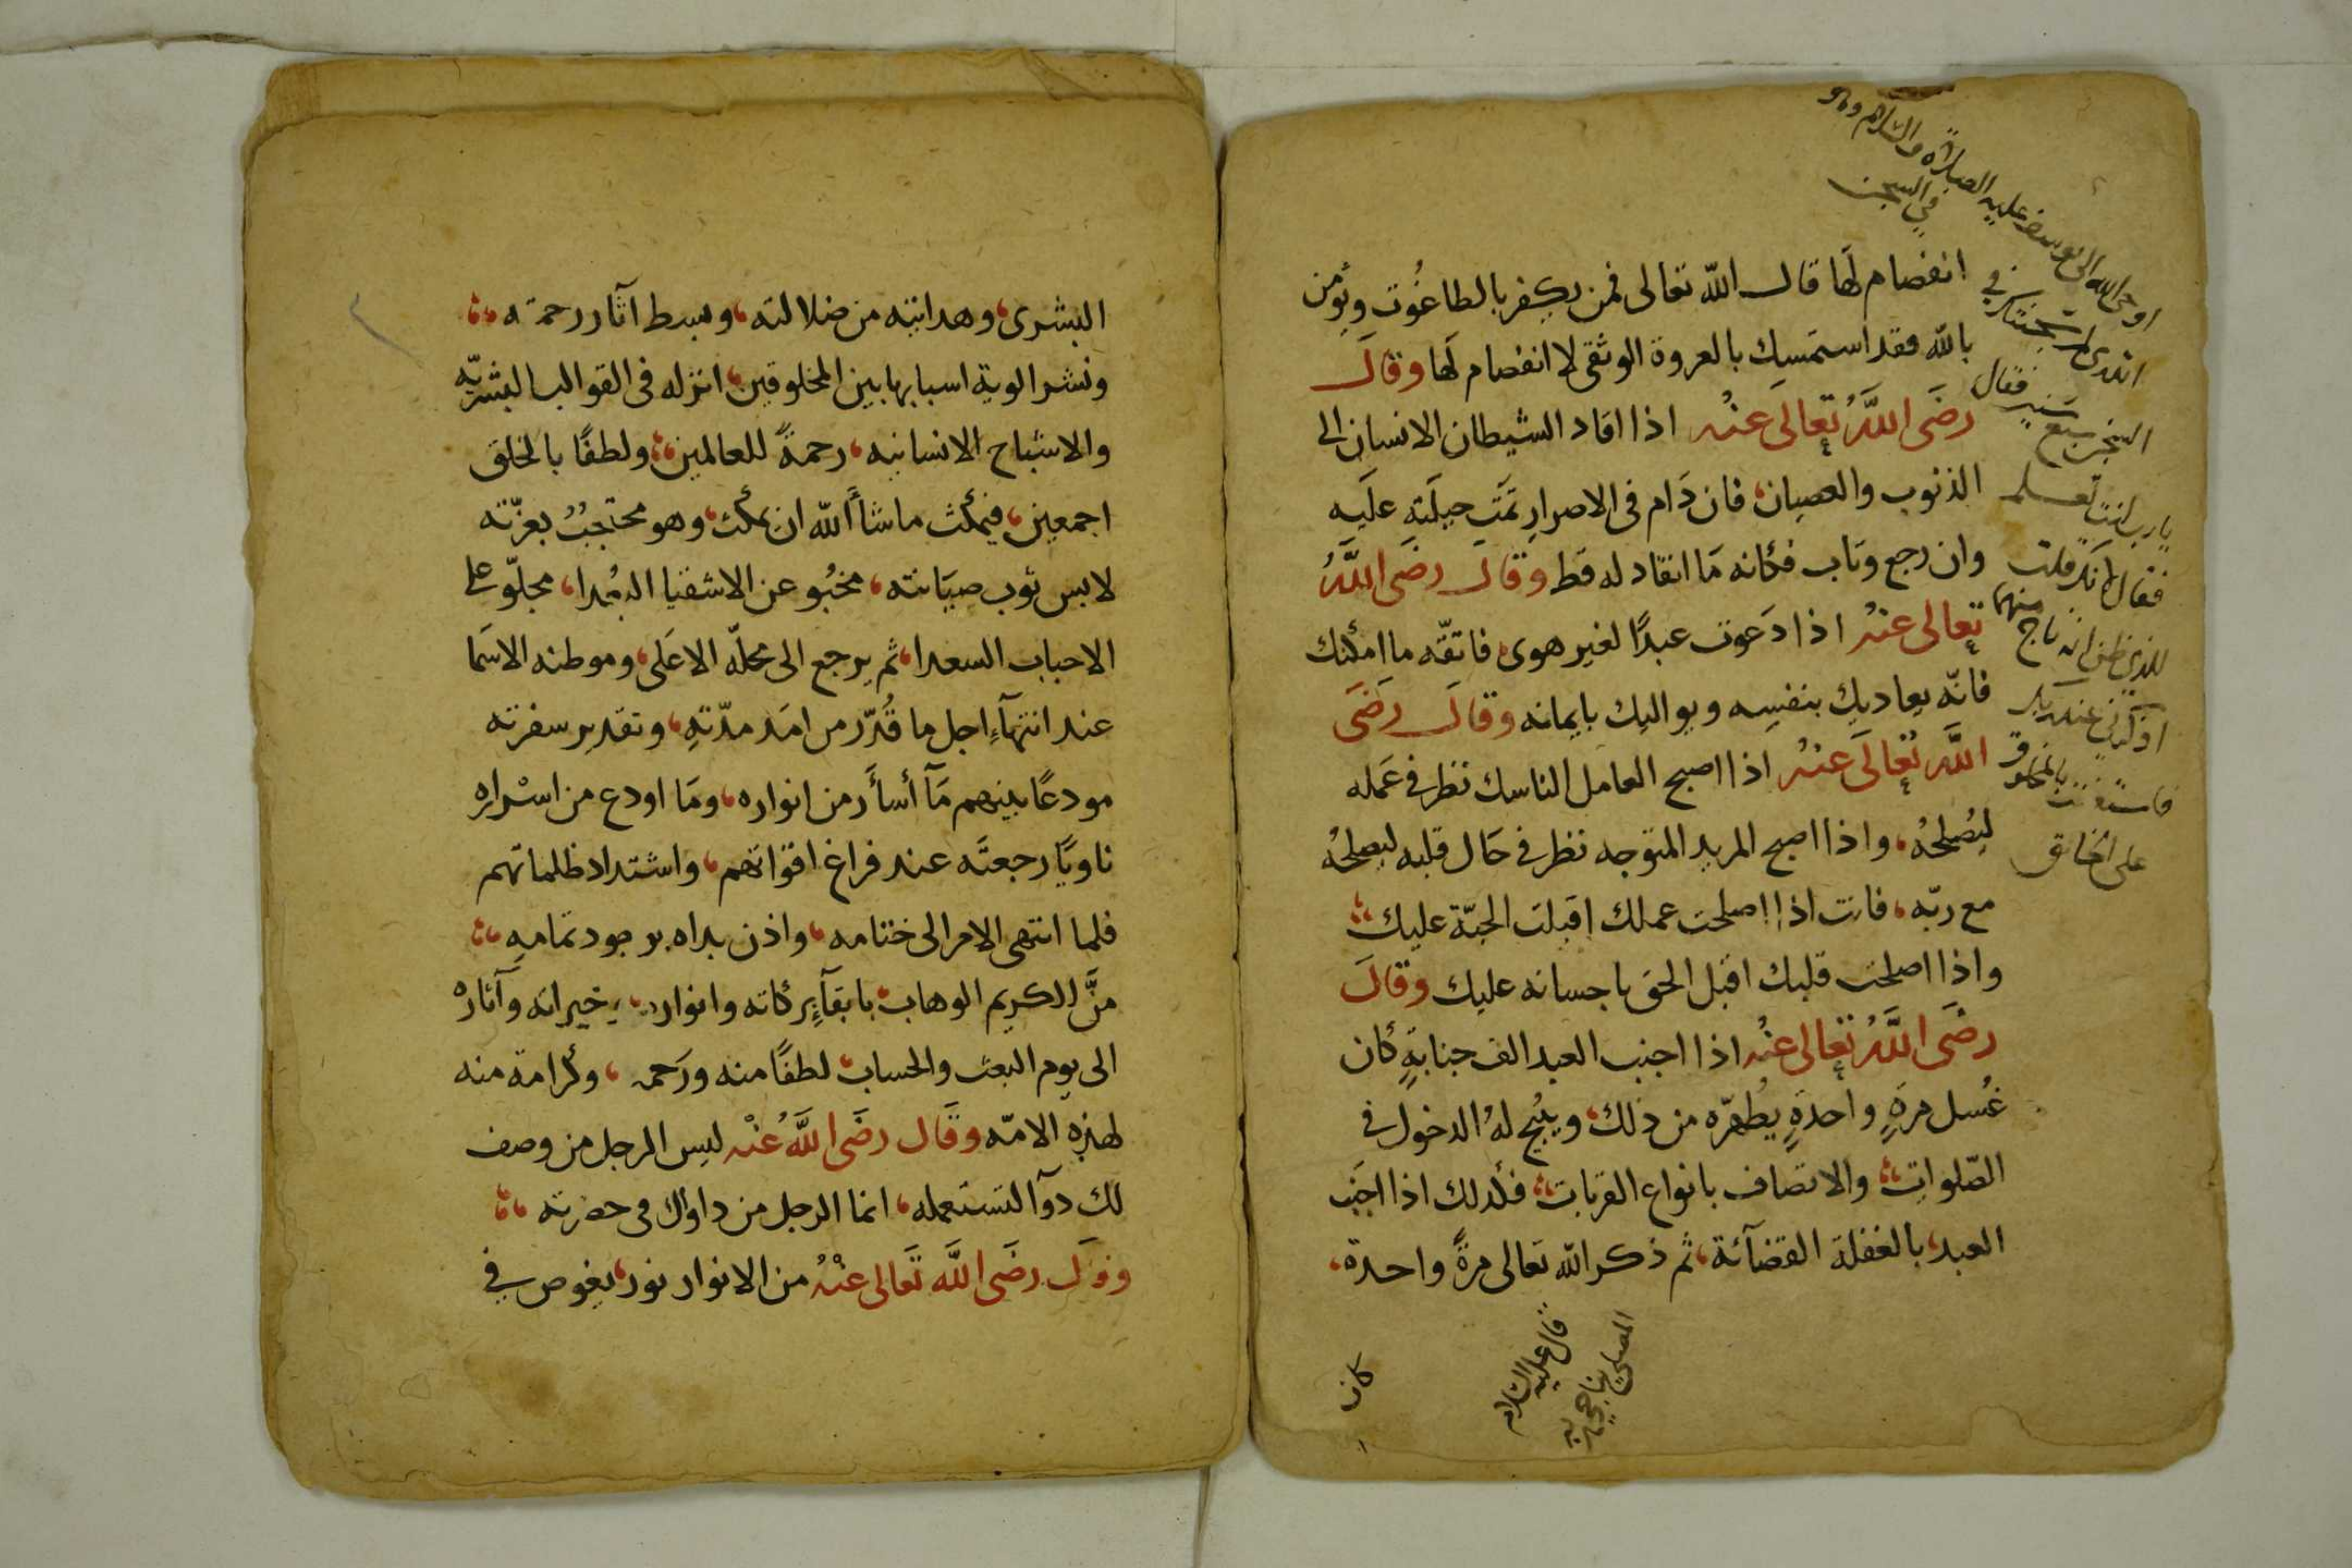 انفصام لَها قال الله تعالى فمن يكفر بالطاغُوت ويؤمن
بالله فقد استمسك بالعروة الوثقى لا انفصام لَها وقالَ
رضَى اللَّهُ تعالَى عنْه اذا اقاد الشيطان الانسان الى
الذنوب والعصيان، فان دَام فى الاصرارِ تمَّت حيلَته علَيه
وان رجع وتاب فكانه مَا انقاد له قَط وقالَ رضَى اللَّهُ
تعالى عنْهُ اذا دَعوت عبدًا لغير هوى فاتقّه ما امكنك
فانّه يعاديك بنفسِه ويواليك بايمانه وقالَ رضَى
اللَّه تعالَى عنْهُ اذا اصبح العامل الناسك نظر فى عَمله
ليُصلحُه، واذا اصبح المريد المتوجه نظر فى حَال قلبه ليصلحُه
مع ربّه، فانت اذا اصلحت عملك اقبلت الجنّة عليك
واذا اصلحت قلبك اقبل الحق باحسانه عليك وقالَ
رضَى اللَّهُ تعالى عنْه اذا اجنب العبد الف جنابةٍ كان
غُسل مرةٍ واحدةٍ يُطهّره من ذلك، ويبُيح لهُ الدخول فى
الصّلواتِ، والاتصاف بانواع القربات، فكذلك اذا اجنَب
العبد، بالغفلة القضآئة، ثم ذكر الله تعالى مرةً واحدة،
اوحى الله الى يوسف عليه الصلاة والسلام وهو
فى السجن
اتدرى لم سجنتك فى
السجن سبع سنين فقال
يارب انت تعلم
فقال لانك قلت
للذى ظن انه ناج منهما
اذكرنى عند ربك
فاستعنت بالمخلوق
على الخالق
قال عليه السلام
المصلى يناجى ربه
كان
البشرى، وهدانيته من ضلالته، وبسط آثار رحمته
ونشر الوية اسبابها بين المخلوقين، انزله فى القوالب البشريّه
والاشباح الانسانيه، رحمةً للعالمين، ولطفًا بالخلق
اجمعين، فيمكث ما شاأَالله ان يمكث، وهو محتجبٌ بعزّته
لابس ثوب صيَانته، مخبُو عن الاشقيا البُعدا، مجلوّ على
الاحباب السعدا، ثم يرجع الى محلّه الاعلَى، وموطنه الاسمَا
عند انتهآءِ اجل ما قُدّر من امَد مدّتهِ، وتقدير سفرته
مودعًا بينهم مَآ أسأَر من انواره، ومَا اودع من اسْراره
ناويًا رجعتَه عند فراغ اقواتهم، واشتداد ظلماتهم
فلما انتهى الامر الى ختامه، واذن بداه بوجود تمامهِ
منَّ الكريم الوهاب، بابقآءِ بركاته وانواره، خيراته وآثارهْ
الى يوم البعث والحساب، لطفًا منه ورَحمه، وكرامة منه
لهذِه الامّه وقَال رضَى اللَّهُ عنْه ليس الرجل من وصف
لك دوآ لتستعمله، انما الرجل من داواك فى حضرته
وقالَ رضَى اللَّه تعَالى عنْهُ من الانوار نور، يغوص فى